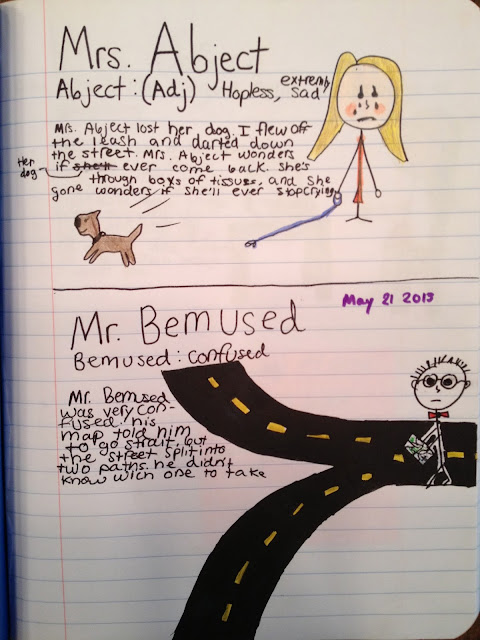 Mrs. Abject
Abject: (Adj) Hopless, extremly sad
Mrs. Abject lost her dog. I flew off
the leash and darted down
the street. Mrs. Abject wonders
if she'll ever come back. She's
Her dog
gone through boxs of tissues, and she
wonders if she'll ever stop crying
May 21 2013
Mr. Bemused
Bemused: confused
Mr. Bemused
was very con-
fused. his
map told him
to go strait, but
the street split into
two paths. he didn't
know wich one to take